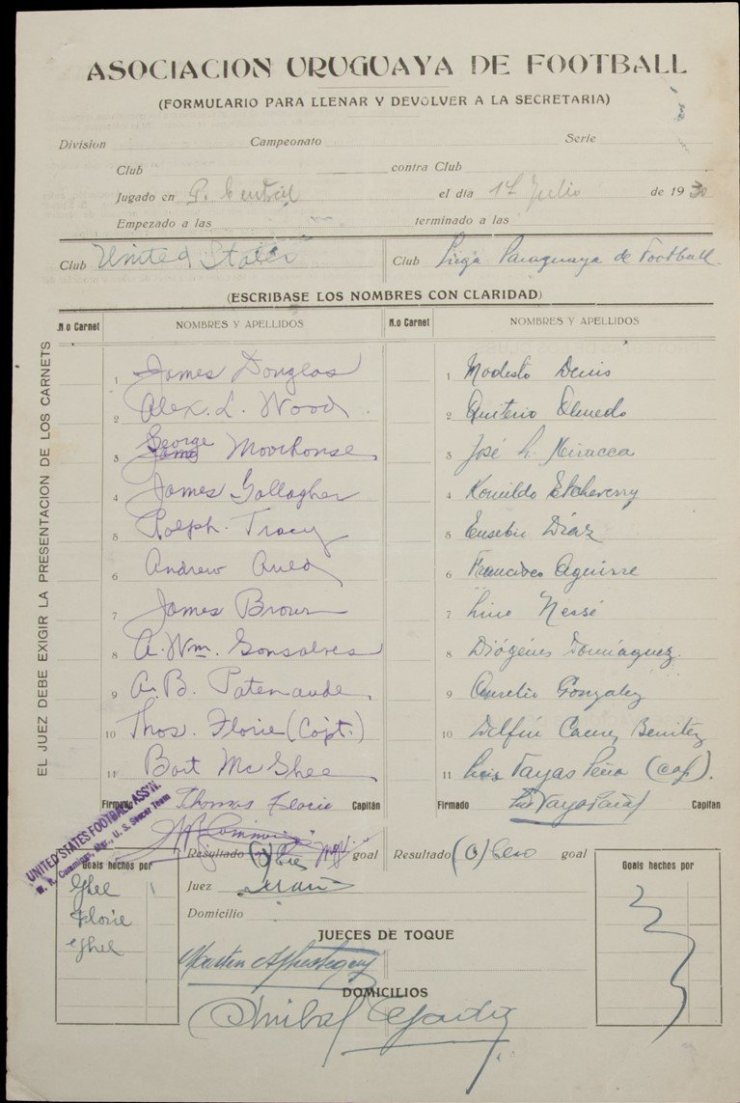 ASOCIACION URUGUAYA DE FOOTBALL
(FORMULARIO PARA LLENAR Y DEVOLVER A LA SECRETARIA)
Division Campeonato Serie
Club contra Club
Jugado en P. Central el dia 17 Julio de 1930
Empezado a las terminado a las
Club United States Club Liga Paraguaya de Football
(ESCRIBASE LOS NOMBRES CON CLARIDAD)
N.o Carnet NOMBRES Y APELLIDOS N.o Carnet NOMBRES Y APELLIDOS
EL JUEZ DEBE EXIGIR LA PRESENTACION DE LOS CARNETS
1 James Douglas 1 Modesto Denis
2 Alex. L. Wood 2 Quiterio Olmedo
3 George Moorhouse 3 José L. Miracca
4 James Gallagher 4 Romildo Etcheverry
5 Ralph Tracy 5 Eusebio Diaz
6 Andrew Auld 6 Francisco Aguirre
7 James Brown 7 Lino Nessi
8 A. Wm. Gonsalves 8 Diógenes Domínguez.
9 A. B. Patenaude 9 Aurelio Gonzalez
10 Thos. Florie (Capt.) 10 Delfin Benitez
11 Bart McGhee 11 Luis Vargas Peña (cap).
Firmado Thomas Florie Capitán Firmado Capitan
UNITED STATES FOOTBALL ASS'N.
W. R. Cummings, Mgr., U. S. Soccer Team
Resultado (3) goal Resultado (0) Cero goal
Goals hechos por Goals hechos por
Ghee
Florie
Ghee
Juez
Domicilio
JUECES DE TOQUE
Martin
DOMICILIOS
Anibal